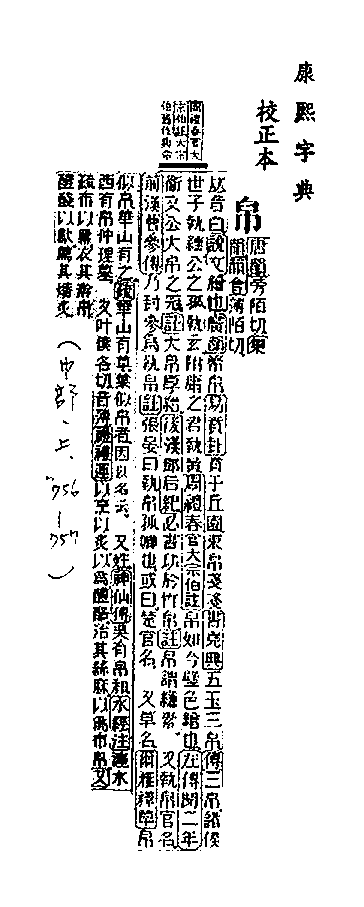 康熙字典
校正本
帛
唐韻旁陌切集
韻韻會薄陌切
𠀤音白說文繒也廣韻幣帛易賁卦賁于丘園束帛戔戔書堯典五玉三帛傳三帛諸侯
世子執纁公之孤執玄附庸之君執黃周禮春官大宗伯註帛如今璧色繒也左傳閔二年
衞文公大帛之冠註大帛厚繒後漢鄧后紀必書功於竹帛註帛謂縑素 又執帛官名
前漢曹參傳乃封參爲執帛註張晏曰執帛孤卿也或曰楚官名 又草名爾雅釋草帛
似帛華山有之疏華山有草葉似帛者因以名云 又姓神仙傳吳有帛和水經注瀍水
西有帛仲理墓 又叶僕各切音薄禮禮運以烹以炙以爲醴酪治其絲麻以爲布帛又
疏布以冪衣其澣帛
醴醆以獻薦其燔炙
周禮春官大
宗伯
（中部、上、756－757）